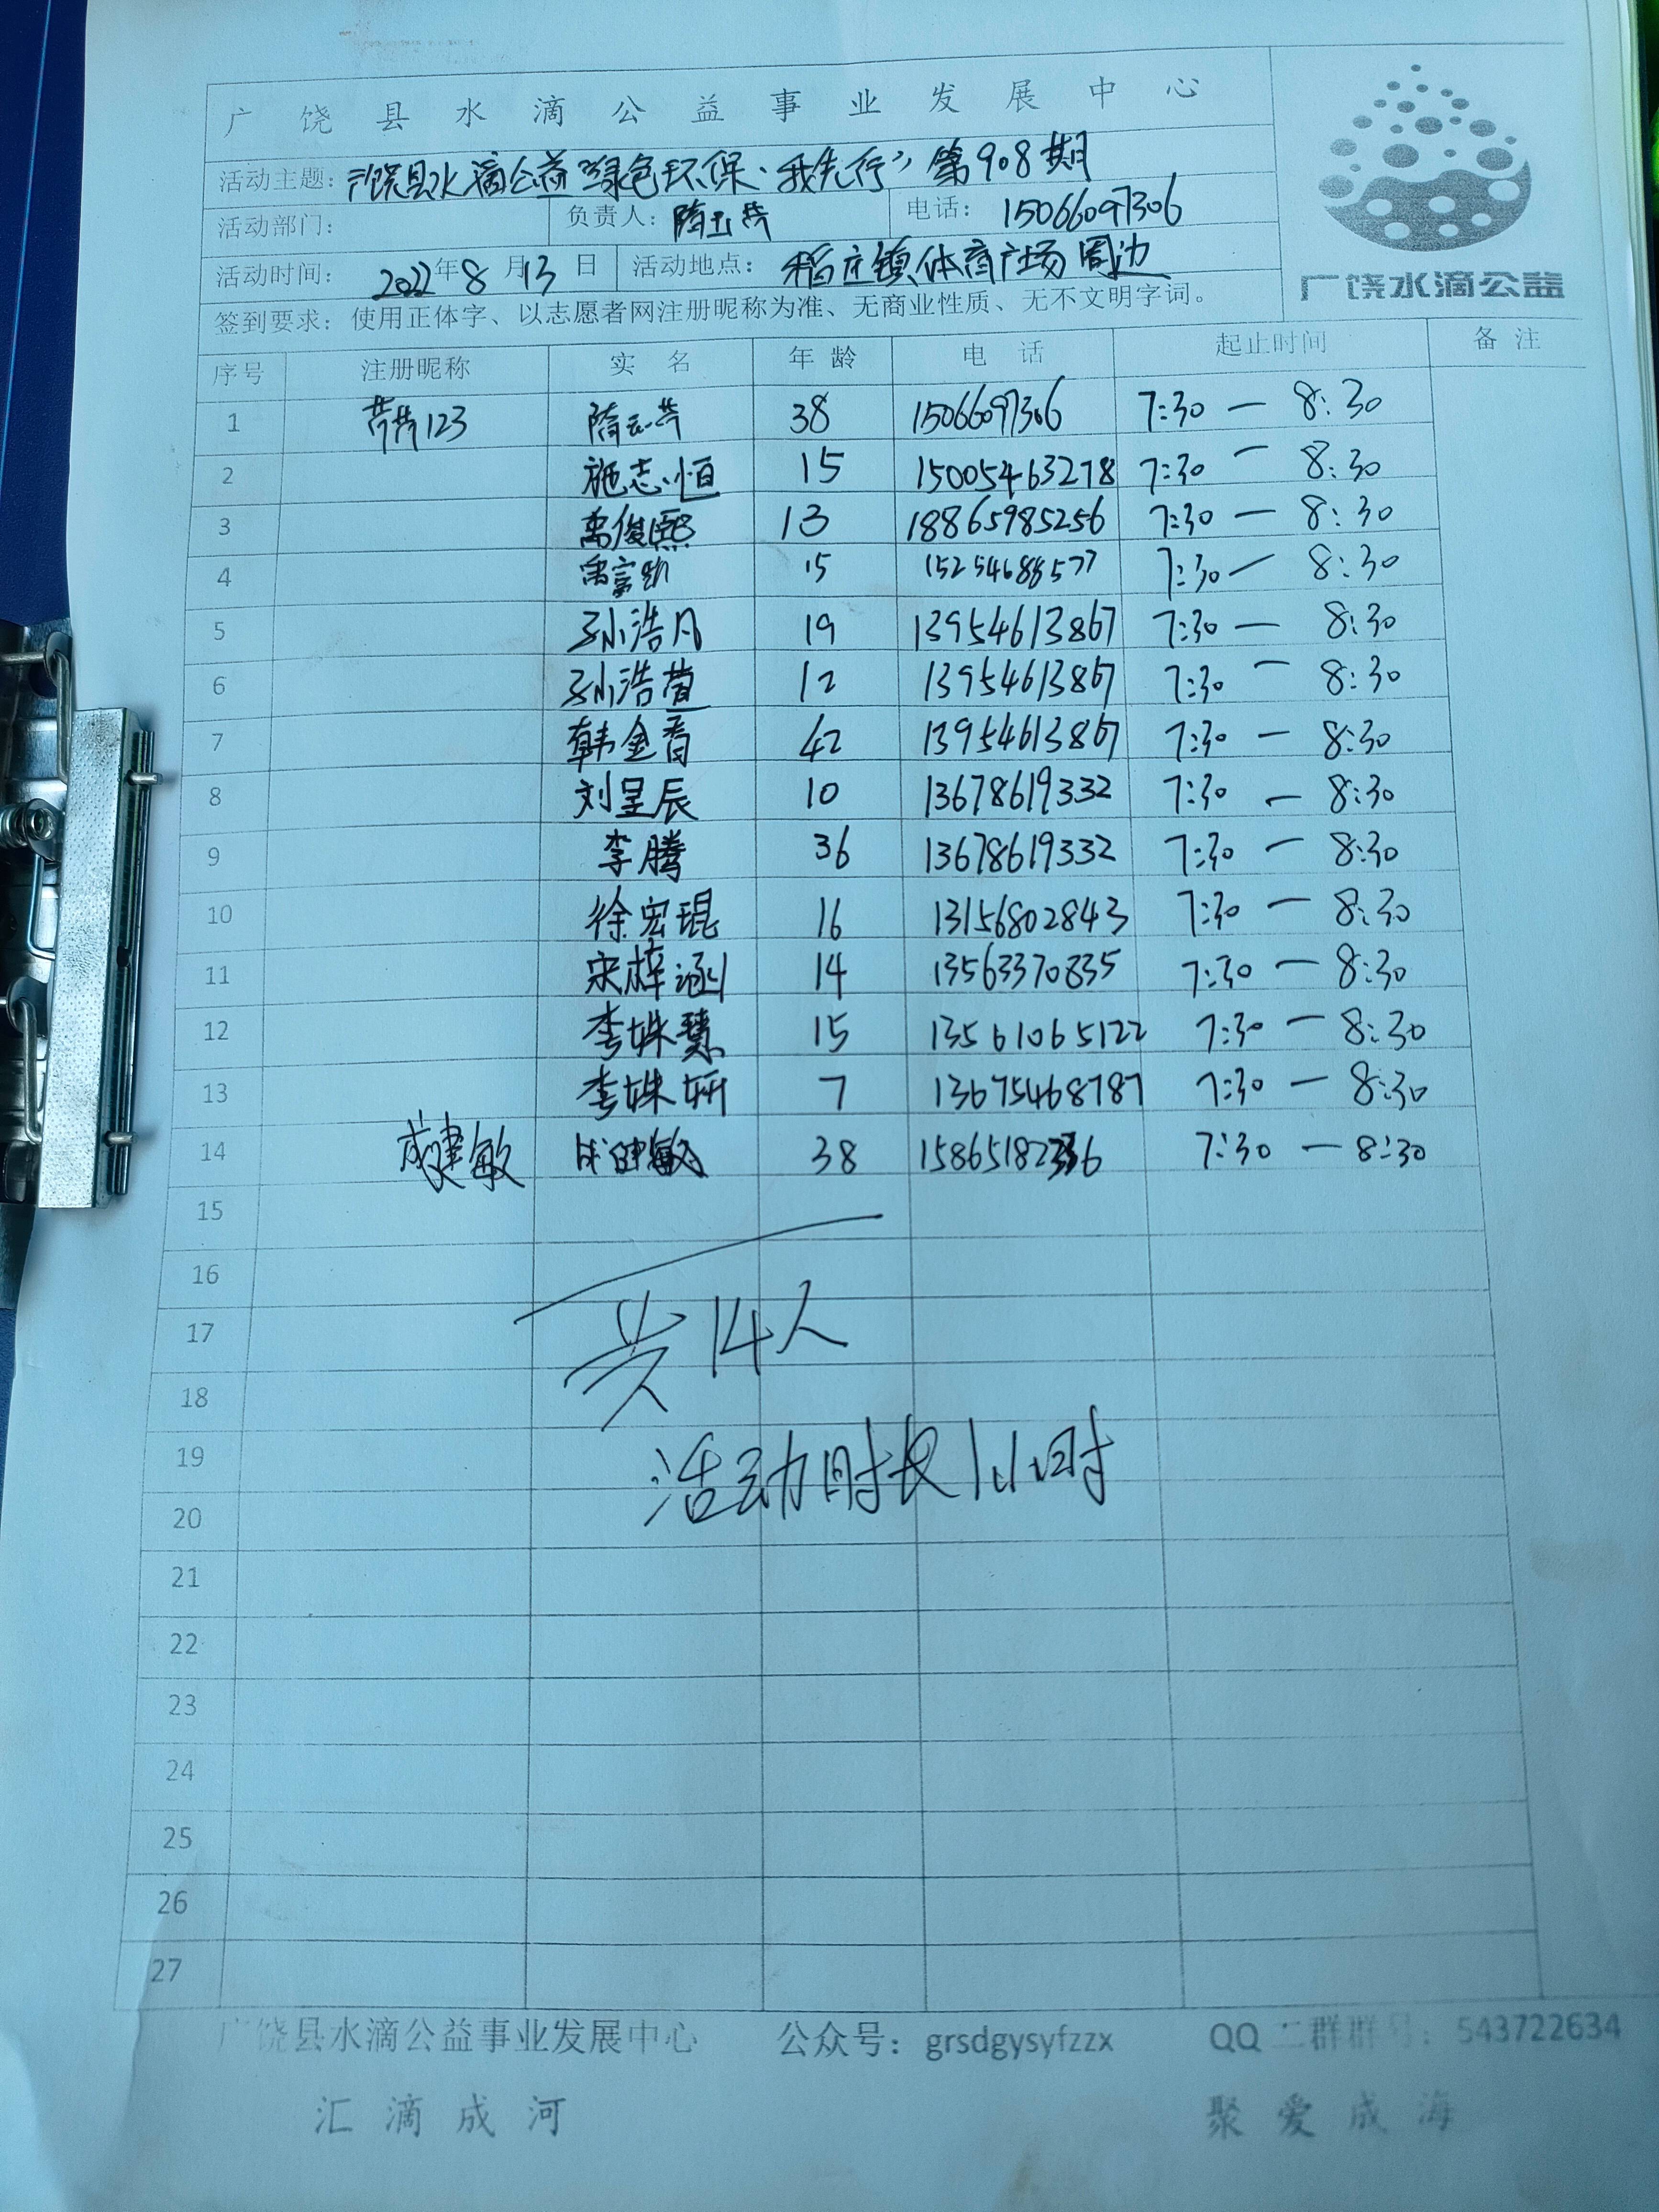 广饶县水滴公益事业发展中心
活动主题：广饶县水滴公益“绿色环保·我先行”第908期
活动部门： 负责人：隋玉芳 电话：15066097306
活动时间：2022年8月13日 活动地点：稻庄镇体育广场周边
签到要求：使用正体字、以志愿者网注册昵称为准、无商业性质、无不文明字词。
广饶水滴公益
序号 注册昵称 实名 年龄 电话 起止时间 备注
1 芳芳123 隋玉芳 38 15066097306 7:30 — 8:30
2 施志恒 15 15005463278 7:30 — 8:30
3 禹俊熙 13 18865985256 7:30 — 8:30
4 15 15254688577 7:30 — 8:30
5 孙浩凡 19 13954613867 7:30 — 8:30
6 孙浩萱 12 13954613867 7:30 — 8:30
7 韩金香 42 13954613867 7:30 — 8:30
8 刘呈辰 10 13678619332 7:30 — 8:30
9 李腾 36 13678619332 7:30 — 8:30
10 徐宏琨 16 13156802843 7:30 — 8:30
11 宋梓涵 14 13563370835 7:30 — 8:30
12 李姝慧 15 13561065122 7:30 — 8:30
13 李姝妍 7 13675468787 7:30 — 8:30
14 成建敏 成建敏 38 7:30 — 8:30
15
16
17
共14人
18
19
活动时长1小时
20
21
22
23
24
25
26
27
广饶县水滴公益事业发展中心 公众号：grsdgysyfzzx QQ二群群号：543722634
汇滴成河 聚爱成海